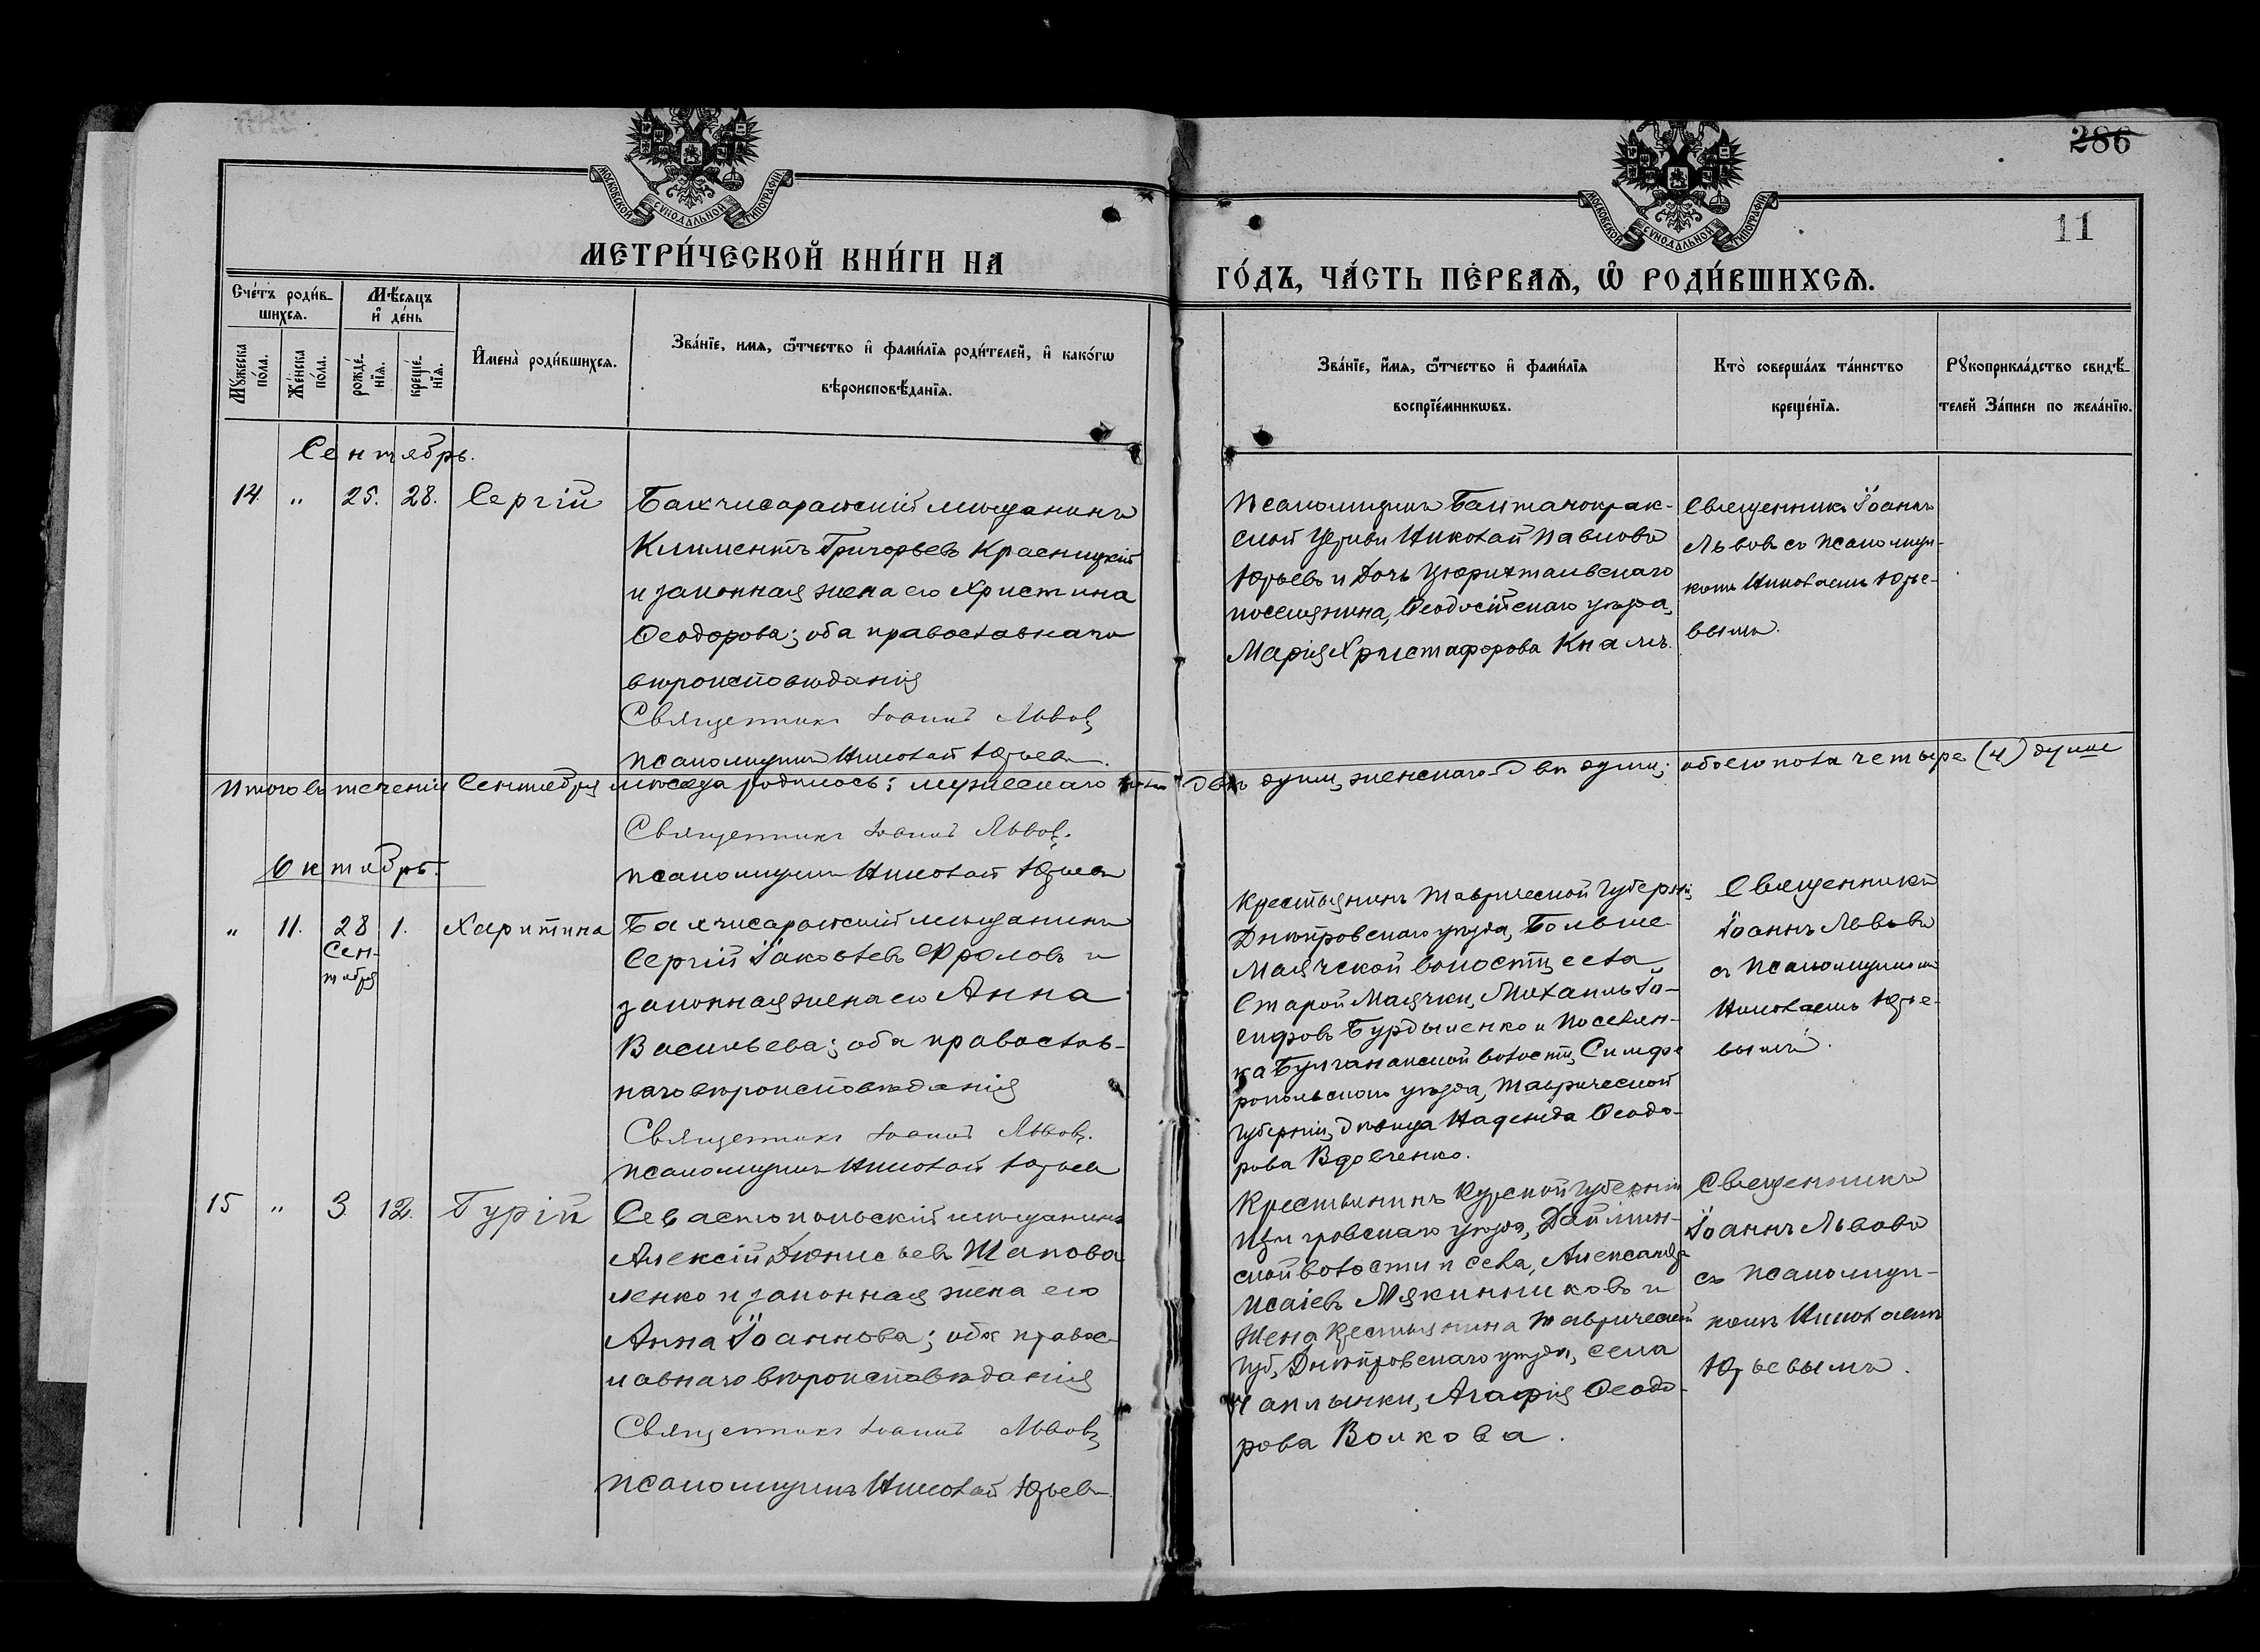 286
11
МОСКОВСКОЙ СѴНОДАЛЬНОЙ ТИПОГРАФІИ
МОСКОВСКОЙ СѴНОДАЛЬНОЙ ТИПОГРАФІИ
МЕТРИ́ЧЕСКОЙ КНИ́ГИ НА
ГО́ДЪ, ЧА́СТЬ ПЕ́РВАѦ, Ѽ РОДИ́ВШИХСѦ.
Сче́тъ роди́в-
шихсѧ.
Мѣ́сяцъ
и҆ де́нь
Мꙋ́жеска
по́ла.
Же́нска
по́ла.
рожде́-
нїѧ.
креще́-
нїѧ.
И҆мена̀ роди́вшихсѧ.
Зва́нїе, имѧ, ѻ҆́тчество и҆ фами́лїѧ роди́телей, и҆ како́гѡ
вѣроисповѣ́данїѧ.
Зва́нїе, и҆́мѧ, ѻ҆́тчество и҆ фами́лїѧ
воспрїе́мникѡвъ.
Кто̀ соверша́лъ та́инство
креще́нїѧ.
Рꙋкоприкла́дство свидѣ́-
телей За́писи по жела́нїю.
Сентябрь.
14. " 25. 28. Сергій
Бахчисарайскій мѣщанинъ
Климентъ Григорьевъ Красницкій
и законная жена его Христина
Ѳеодорова; оба православнаго
вѣроисповѣданія
Священникъ Іоаннъ Львовъ
Псаломщикъ Николай Юрьевъ.
Псаломщикъ
ской Церкви Николай Павловъ
Юрьевъ и Дочь Цюрихтальскаго
поселянина, Ѳеодосійскаго уѣзда,
Марія Христофорова
Священникъ Іоаннъ
Львовъ съ Псаломщи-
комъ Николаемъ Юрье-
вымъ.
Итого въ теченіи Сентября мѣсяца родилось: мужескаго пола двѣ души, женскаго двѣ души; обоего пола четыре (4) души
Священникъ Іоаннъ Львовъ.
Псаломщикъ Николай Юрьевъ
Октябрь.
" 11. 28 1. Харитина
Сен-
тября
Бахчисарайскій мѣщанинъ
Сергій Іаковлевъ Фроловъ и
законная жена его Анна
Васильева; оба православ-
наго вѣроисповѣданія
Священникъ Іоаннъ Львовъ.
Псаломщикъ Николай Юрьевъ
Крестьянинъ Таврической Губерніи,
Днѣпровскаго уѣзда, Больше-
Маячской волости, села
Старой Маячки, Михаилъ Іо-
сифовъ Бурдыменко и Поселян-
ка Булганакской волости, Симфе
ропольскаго уѣзда, Таврической
Губерніи, дѣвица Надежда Ѳеодо-
рова Вдовченко.
Священникъ
Іоаннъ Львовъ
съ Псаломщикомъ
Николаемъ Юрье-
вымъ.
15 " 3. 12. Гурій
Севастопольскій мѣщанинъ
Алексій Діонисьевъ Шапова
ленко и законная жена его
Анна Іоаннова; оба правос-
лавнаго вѣроисповѣданія
Священникъ Іоаннъ Львовъ
Псаломщикъ Николай Юрьевъ.
Крестьянинъ Курской Губерніи
Щигровскаго уѣзда,
ской волости и села, Александръ
Исаіевъ Мякинниковъ и
Жена крестьянина Таврической
Губ, Днѣпровскаго уѣзда, села
Чаплынки, Агафія Ѳеодо-
рова Волкова.
Священникъ
Іоаннъ Львовъ
съ Псаломщи-
комъ Николаемъ
Юрьевымъ.